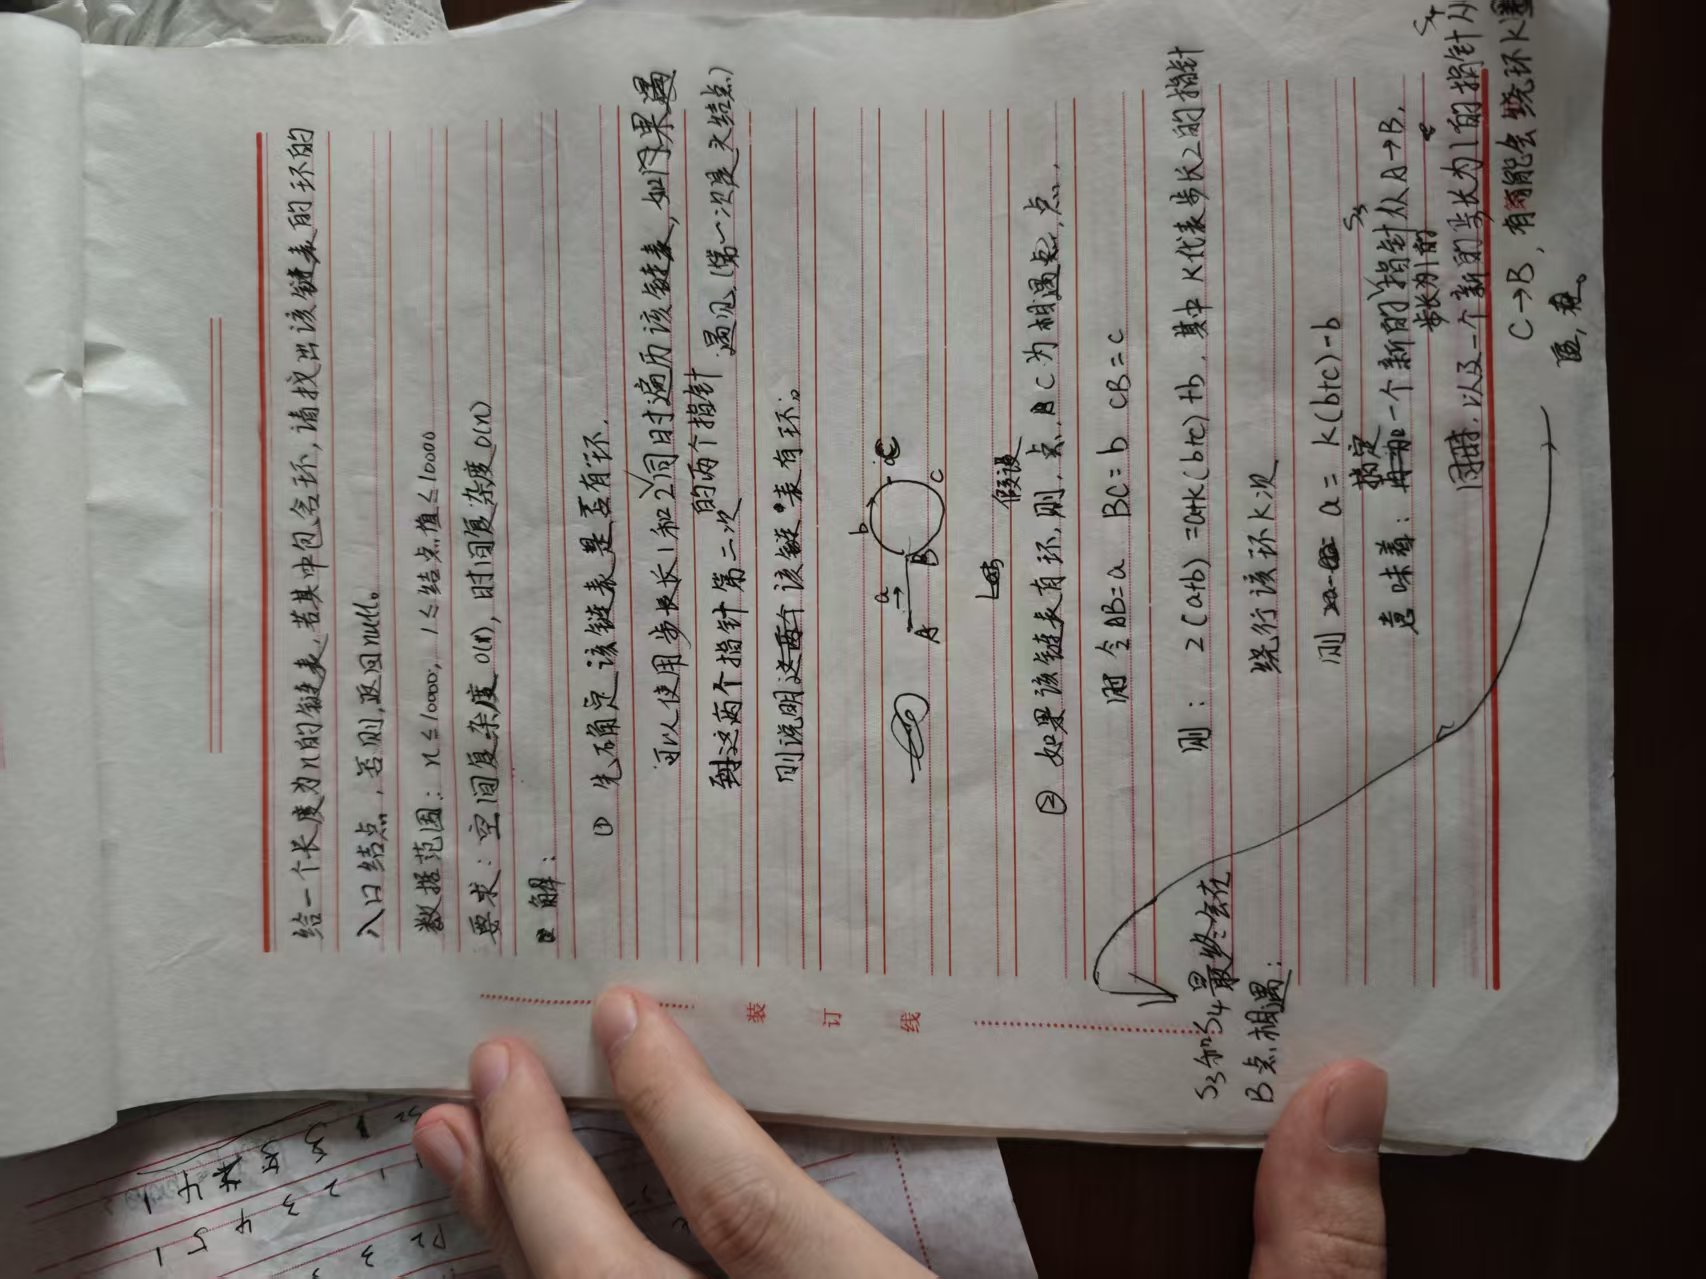 给一个长度为n的链表,若其中包含环,请找出该链表的环的
入口结点,否则,返回null。
数据范围: n≤10000, 1≤结点值≤10000
要求:空间复杂度O(1),时间复杂度O(n)
解:
① 先确定该链表是否有环.
可以使用步长长1和2同时遍历该链表,如果遇
的两个指针
到这两个指针第二次遇见(第一次是头结点)
则说明这两个该链表有环。
a b
A B C
c
假设
② 如果该链表有环,则,点C为相遇点,
则令AB=a BC=b CB=c
则: 2(a+b)=a+k(b+c)+b,其中K代表步长2的指针
绕行该环K次
则 a = k(b+c)-b
搞定 S3
意味着: 一个新的指针从A→B,
步长为1的
同时,以及一个新的步长为1的指针从 S4
C→B,有可能会绕环K遍
S3和S4最终会在
B点相遇:
装
订
线
1 4
1 5 4 3 2 1